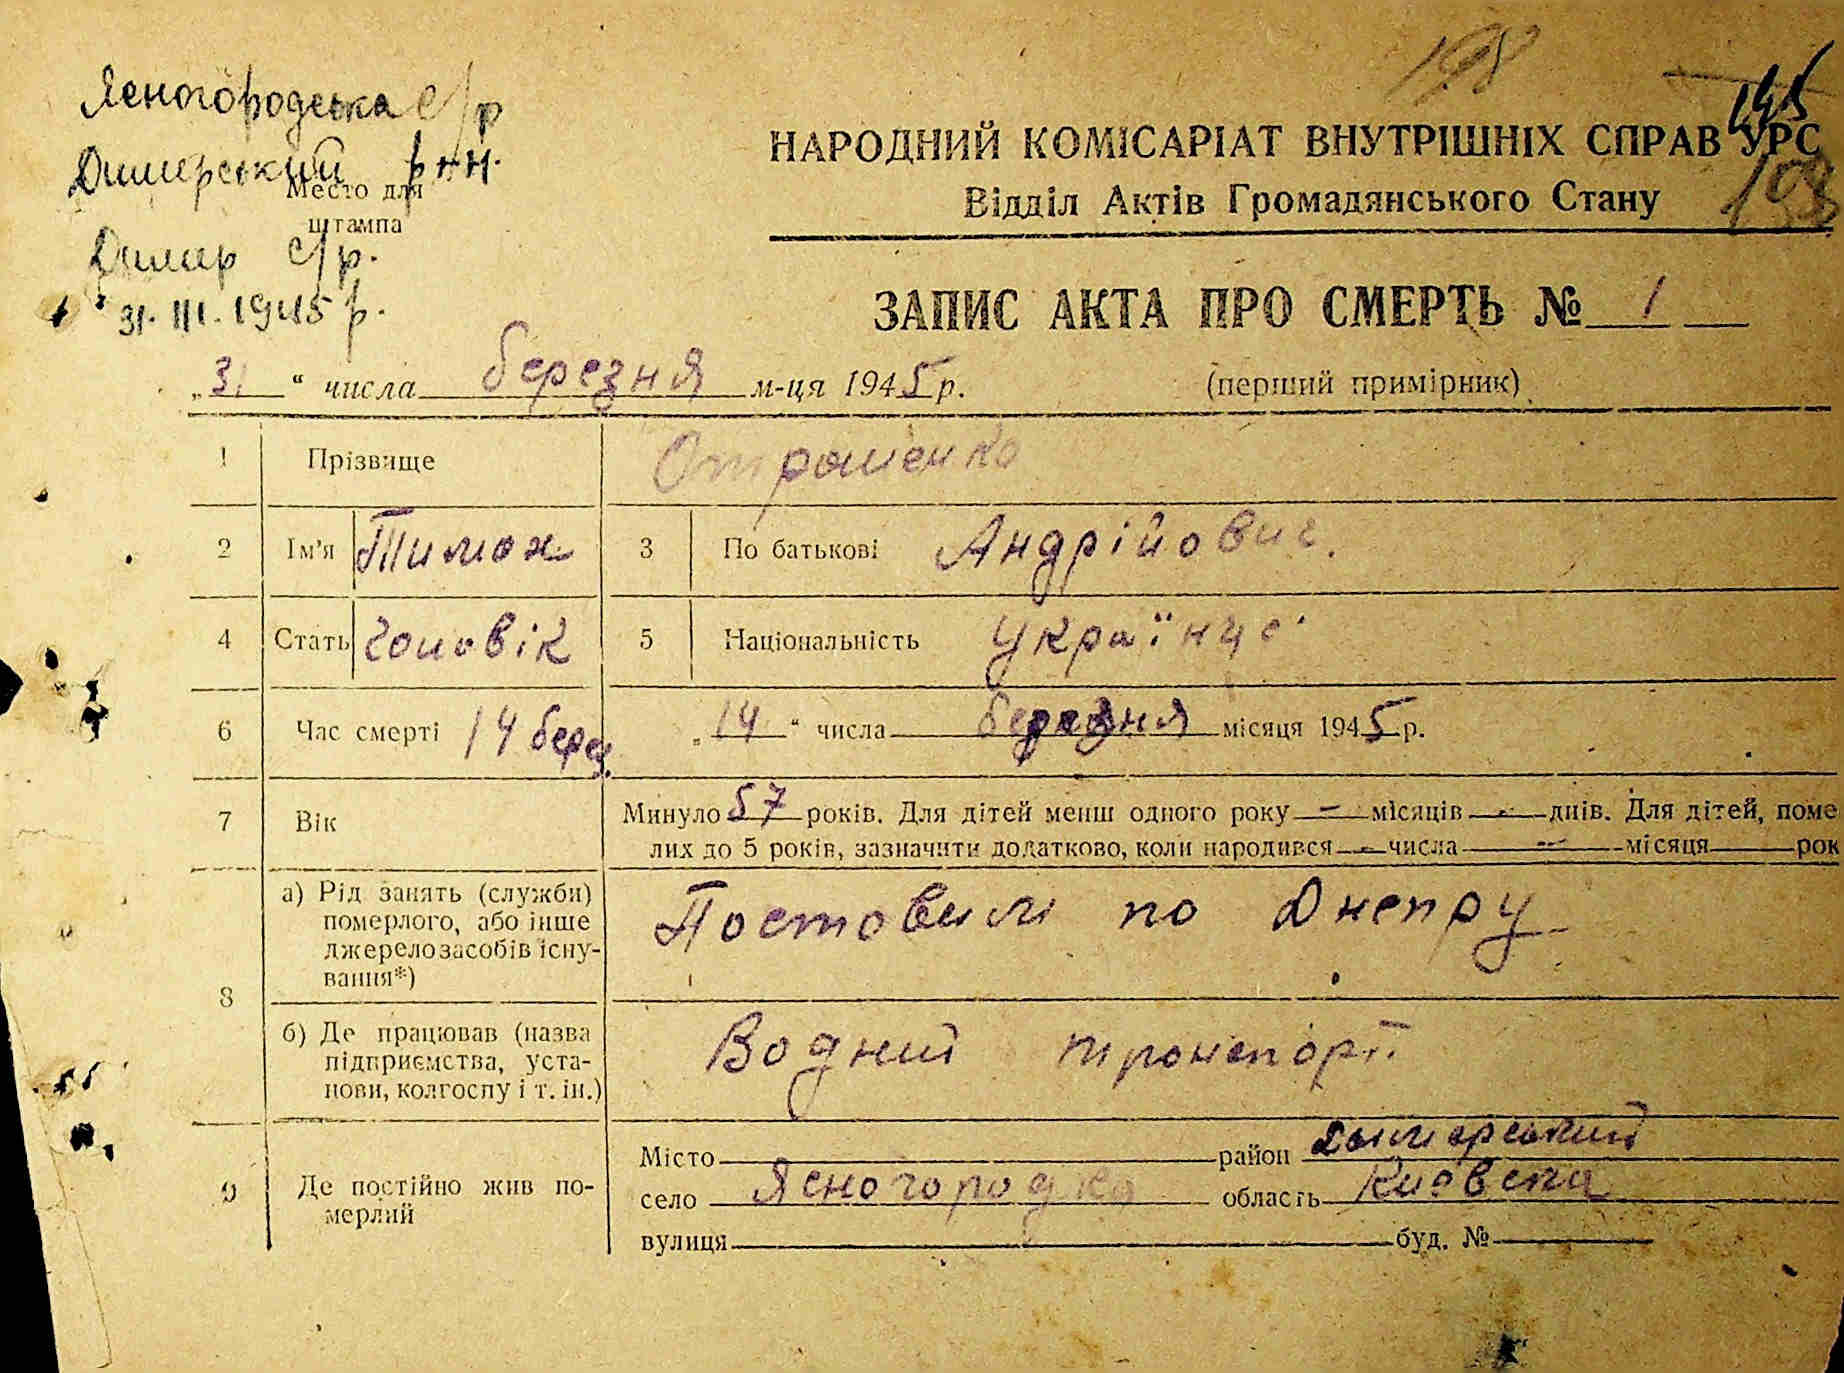 Ясногородська с/р
Димерський р-н.
Место для
штампа
Димер с/р.
31. III. 1945 р.
198
195
198
НАРОДНИЙ КОМІСАРІАТ ВНУТРІШНІХ СПРАВ УРС
Відділ Актів Громадянського Стану
ЗАПИС АКТА ПРО СМЕРТЬ № 1
„31“ числа березня м-ця 1945 р. (перший примірник)
1 Прізвище
2 Ім'я 3 По батькові Андрійович.
4 Стать чоловік 5 Національність
6 Час смерті 14 берез. „14“ числа березня місяця 1945 р.
7 Вік Минуло 57 років. Для дітей менш одного року — місяців — днів. Для дітей, поме
лих до 5 років, зазначити додатково, коли народився — числа — місяця рок
8 а) Рід занять (служби) померлого, або інше джерело засобів існування*) по Днепру
б) Де працював (назва підприємства, установи, колгоспу і т. ін.) Водний транспорт.
9 Де постійно жив померлий
Місто район Димерський
село Ясногородка область Києвска
вулиця буд. №